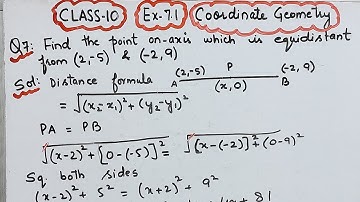 CLASS-10 Ex-7.1 Coordinate Geometry
Q7: Find the point on-axis which is equidistant
from (2,-5) & (-2,9)
Sol: Distance formula A (2,-5) P (-2,9)
(x,0) B
= √(x₂-x₁)² + (y₂-y₁)²
PA = PB
√(x-2)² + [0-(-5)]² = √[x-(-2)]² + (0-9)²
Sq. both sides
(x-2)² + 5² = (x+2)² + 9²